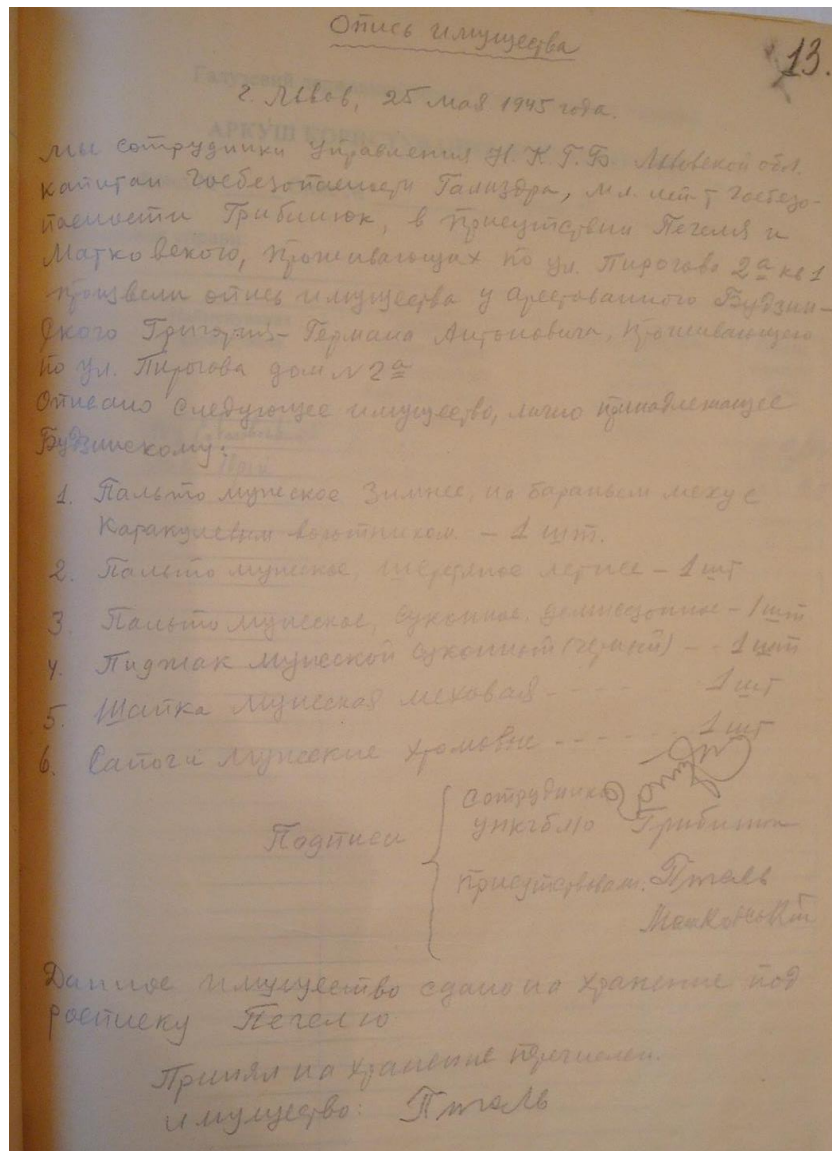 Опись имущества
13.
г. Львов, 25 мая 1945 года.
Мы сотрудники Управления Н.К.Г.Б Львовской обл.
капитан Госбезопасности Гализдра, мл. лей-т Госбезо-
пасности Грибинюк, в присутствии Печеля и
Матковского, проживающих по ул. Пирогова 2а кв 1
произвели опись имущества у арестованного Будзин-
ского Григория-Германа Антоновича, проживающего
по ул. Пирогова дом № 2а
Описано следующее имущество, лично принадлежащее
Будзинскому:
1. Пальто мужское зимнее, на бараньем меху с
каракулевым воротником – 1 шт.
2. Пальто мужское, шерстяное летнее – 1 шт
3. Пальто мужское, суконное, демисезонное – 1 шт
4. Пиджак мужской суконный (черный) – – 1 шт
5. Шапка мужская меховая - - - - 1 шт
6. Сапоги мужские хромовые - - - - - 1 шт
Подписи
Сотрудники
УНКГБ ЛО Грибинюк
Присутствовали:
Матковський
Данное имущество сдано на хранение под
расписку Печелю
Принял на хранение перечислен.
имущество: